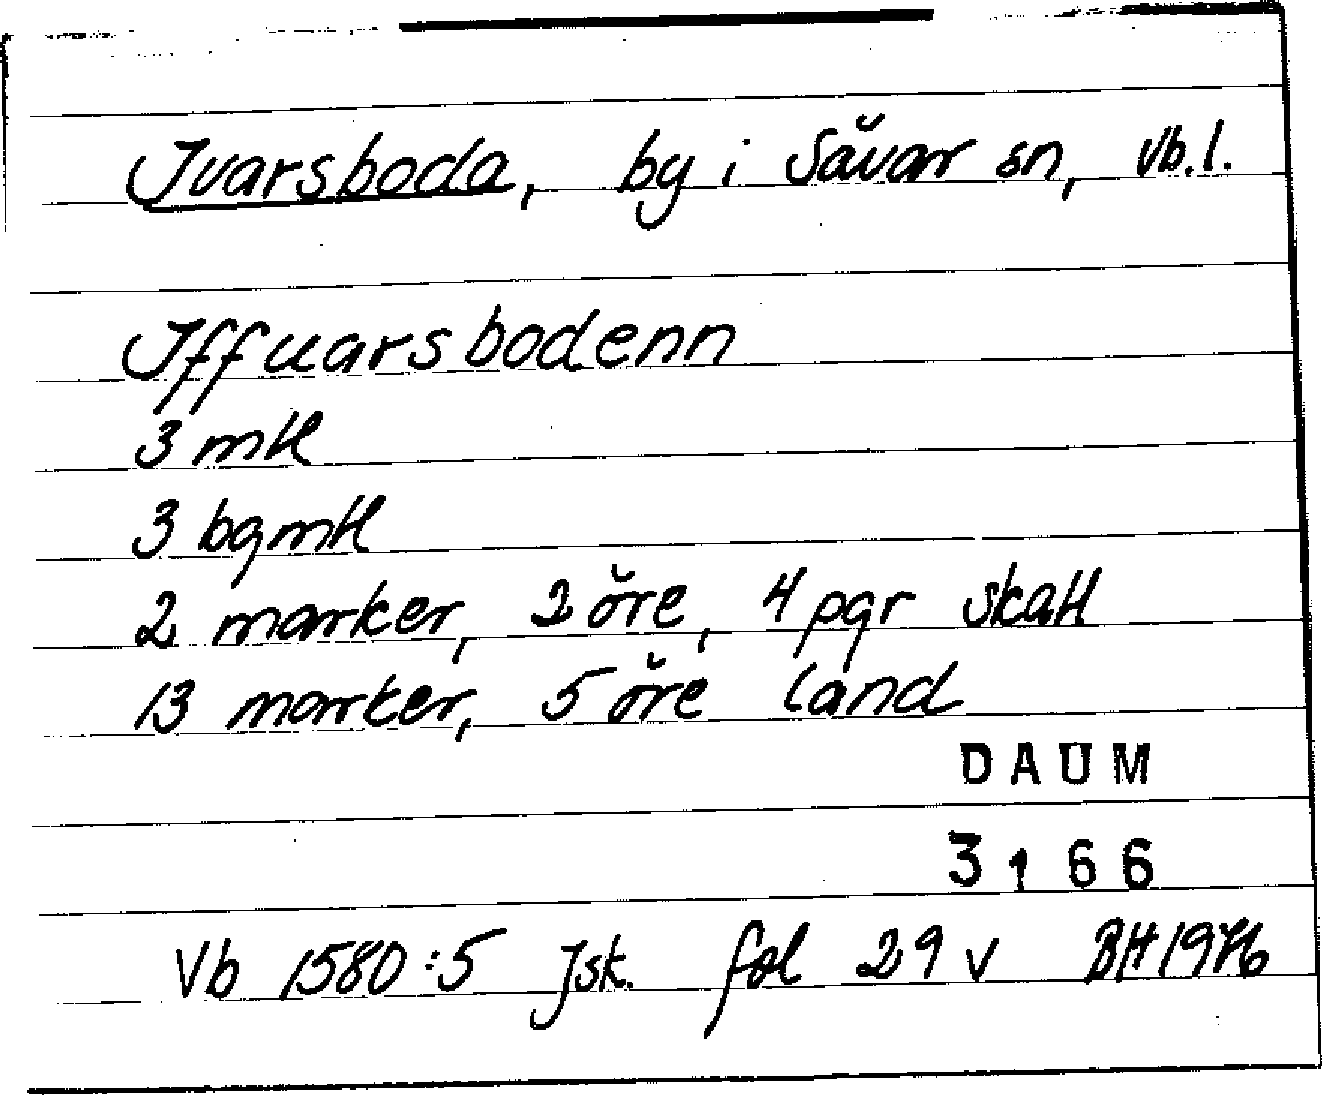 Ivarsboda, by i Sävar sn, Vb.l.
Iffuarsbodenn
3 mtl
3 bgmtl
2 marker, 2 öre, 4 pgr skatt
13 marker, 5 öre land
DAUM
3166
Vb 1580:5 Jsk. fol 29 v BH 1976